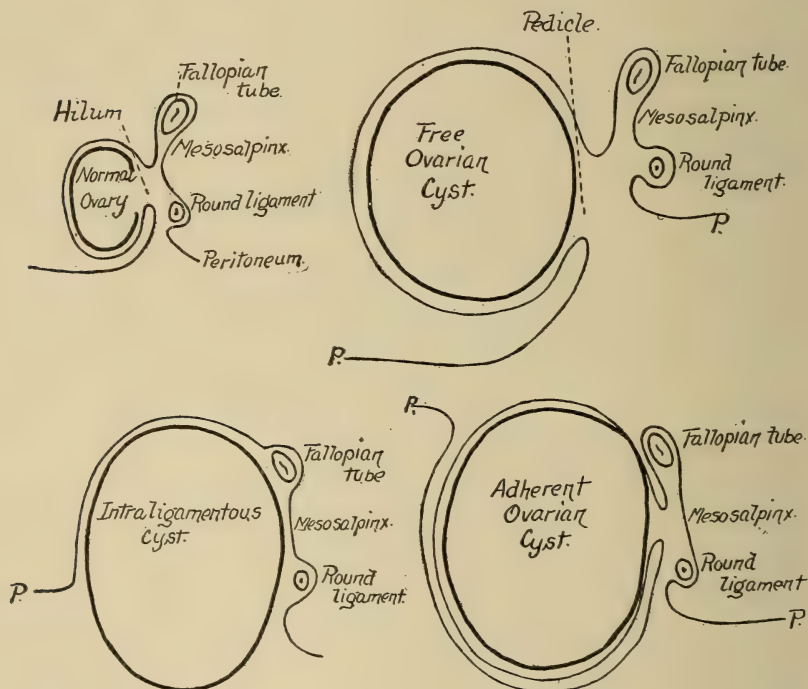 Hilum
Fallopian
tube.
Normal
Ovary
Mesosalpinx.
Round ligament
Peritoneum.
Pedicle.
Free
Ovarian
Cyst.
Fallopian tube.
Mesosalpinx.
Round
ligament.
P.
P.
Intraligamentous
Cyst.
Fallopian
tube
Mesosalpinx.
Round
ligament.
P.
P.
Adherent
Ovarian
Cyst.
Fallopian tube.
Mesosalpinx.
Round
ligament
P.